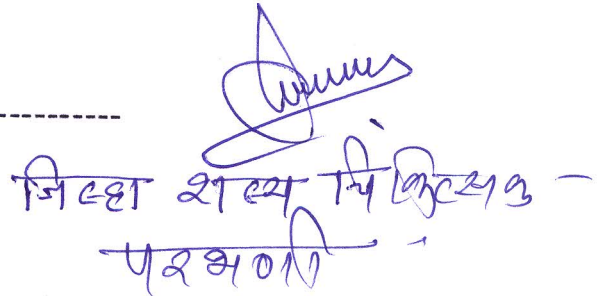 जिल्हा शल्य चिकित्सक -
परभणी